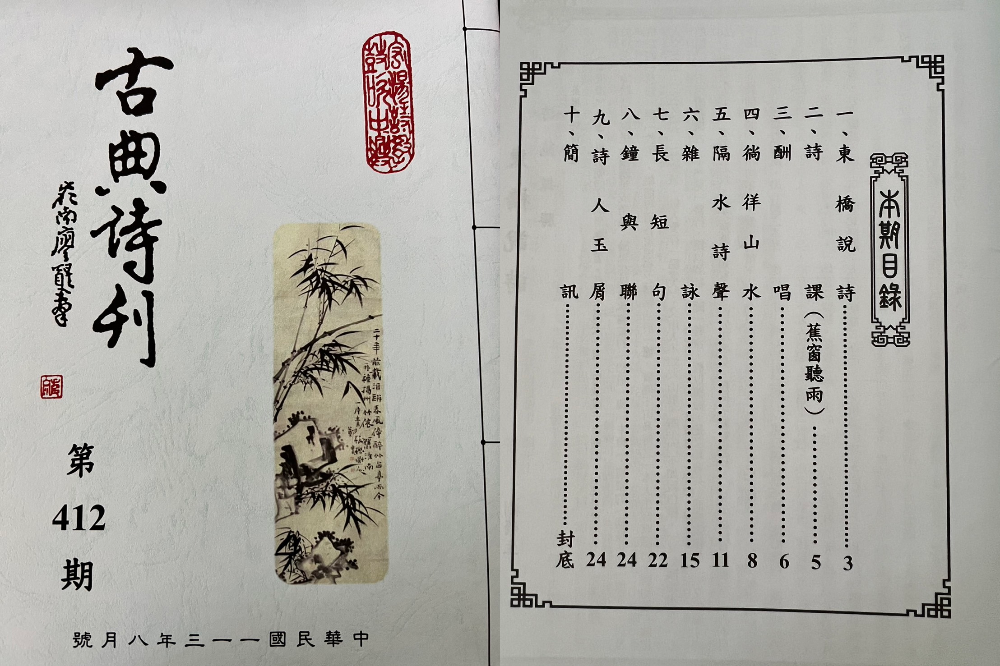 古典詩刊
嶺南廖
第
412
期
二十年前載酒瓶春風倚醉竹西亭而今
中華民國一一三年八月號
本期目錄
一、東橋說詩……3
二、詩課（蕉窗聽雨）……5
三、酬唱……6
四、徜徉山水……8
五、隔水詩聲……11
六、雜詠……15
七、長短句……22
八、鐘與聯……24
九、詩人玉屑……24
十、簡訊……封底